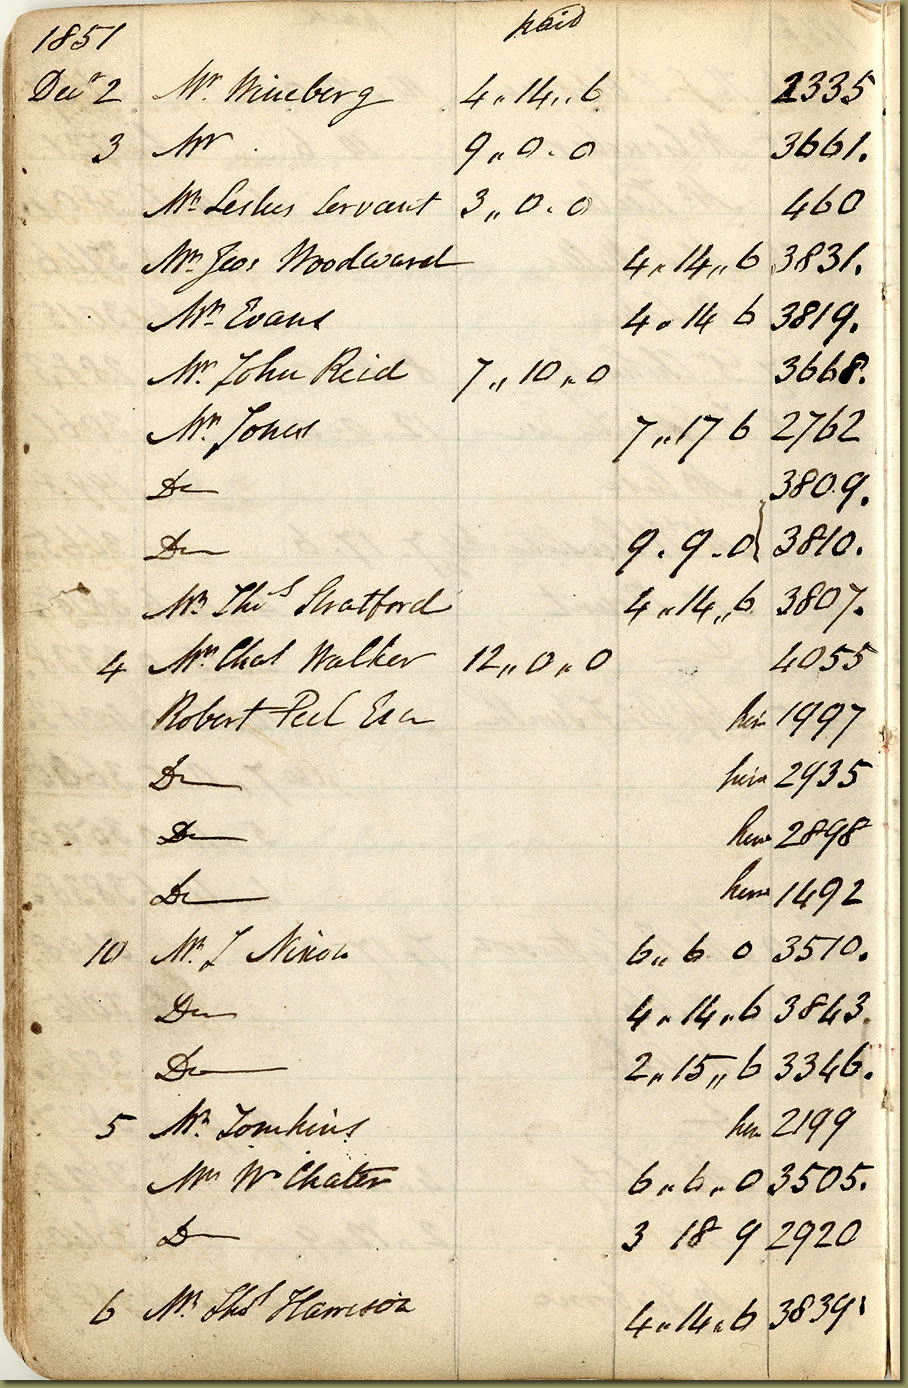 1851 paid
Decr 2 Mr. Wineberg 4,,14,,6 2335
3 Mr . 9,,0-0 3661.
Mr Leslies Servant 3,,0-0 460
Mr Geos Woodward 4,,14,,6 3831.
Mr Evans 4,,14 6 3819.
Mr. John Reid 7,,10,,0 3668.
Mr. Jones 7,,17 6 2762
Do 3809.
Do 9.9-0 3810.
Mr Thos Stratford 4,,14,,6 3807.
4 Mr Chas Walker 12,,0,,0 4055
Robert Peel Esq 1997
Do 2935
Do 2898
Do 1492
10 Mr. J 6,,6 0 3510.
Do 4,,14,,6 3843.
Do 2,,15,,6 3346.
5 Mr. Tomkins 2199
Mr Wm Chater 6,,6,,0 3505.
Do 3 18 9 2920
6 Mr. Thos Harrison 4,,14,,6 3839